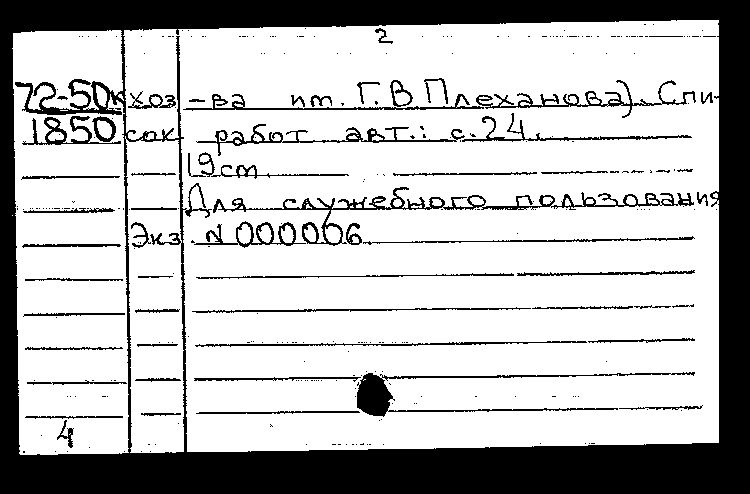 2
72-50к хоз-ва им. Г.В Плеханова). Спи-
1850 сок работ авт.: с.24.
19см.
Для служебного пользования
Экз. N 000006.
4